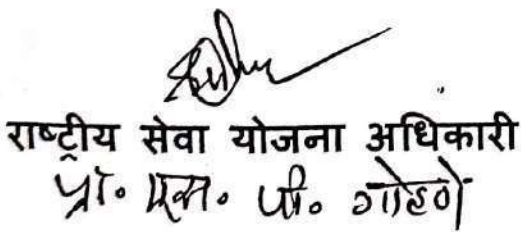 राष्ट्रीय सेवा योजना अधिकारी
प्रो. एस. पी. गोहणे